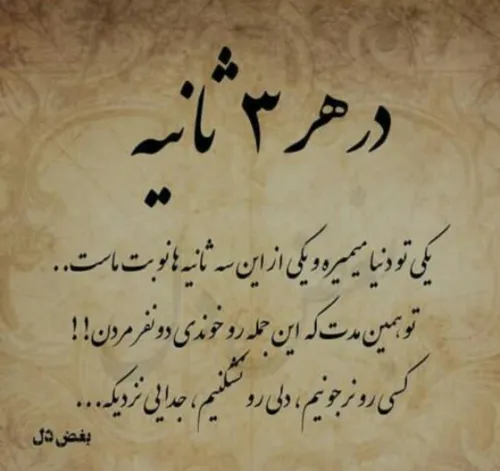 در هر ۳ ثانیه
یکی تو دنیا میمیره و یکی از این سه ثانیه ها نوبت ماست..
تو همین مدت که این جمله رو خوندی دو نفر مردن!!
کسی رو نرجونیم، دلی رو نشکنیم، جدایی نزدیکه...
بغض دل